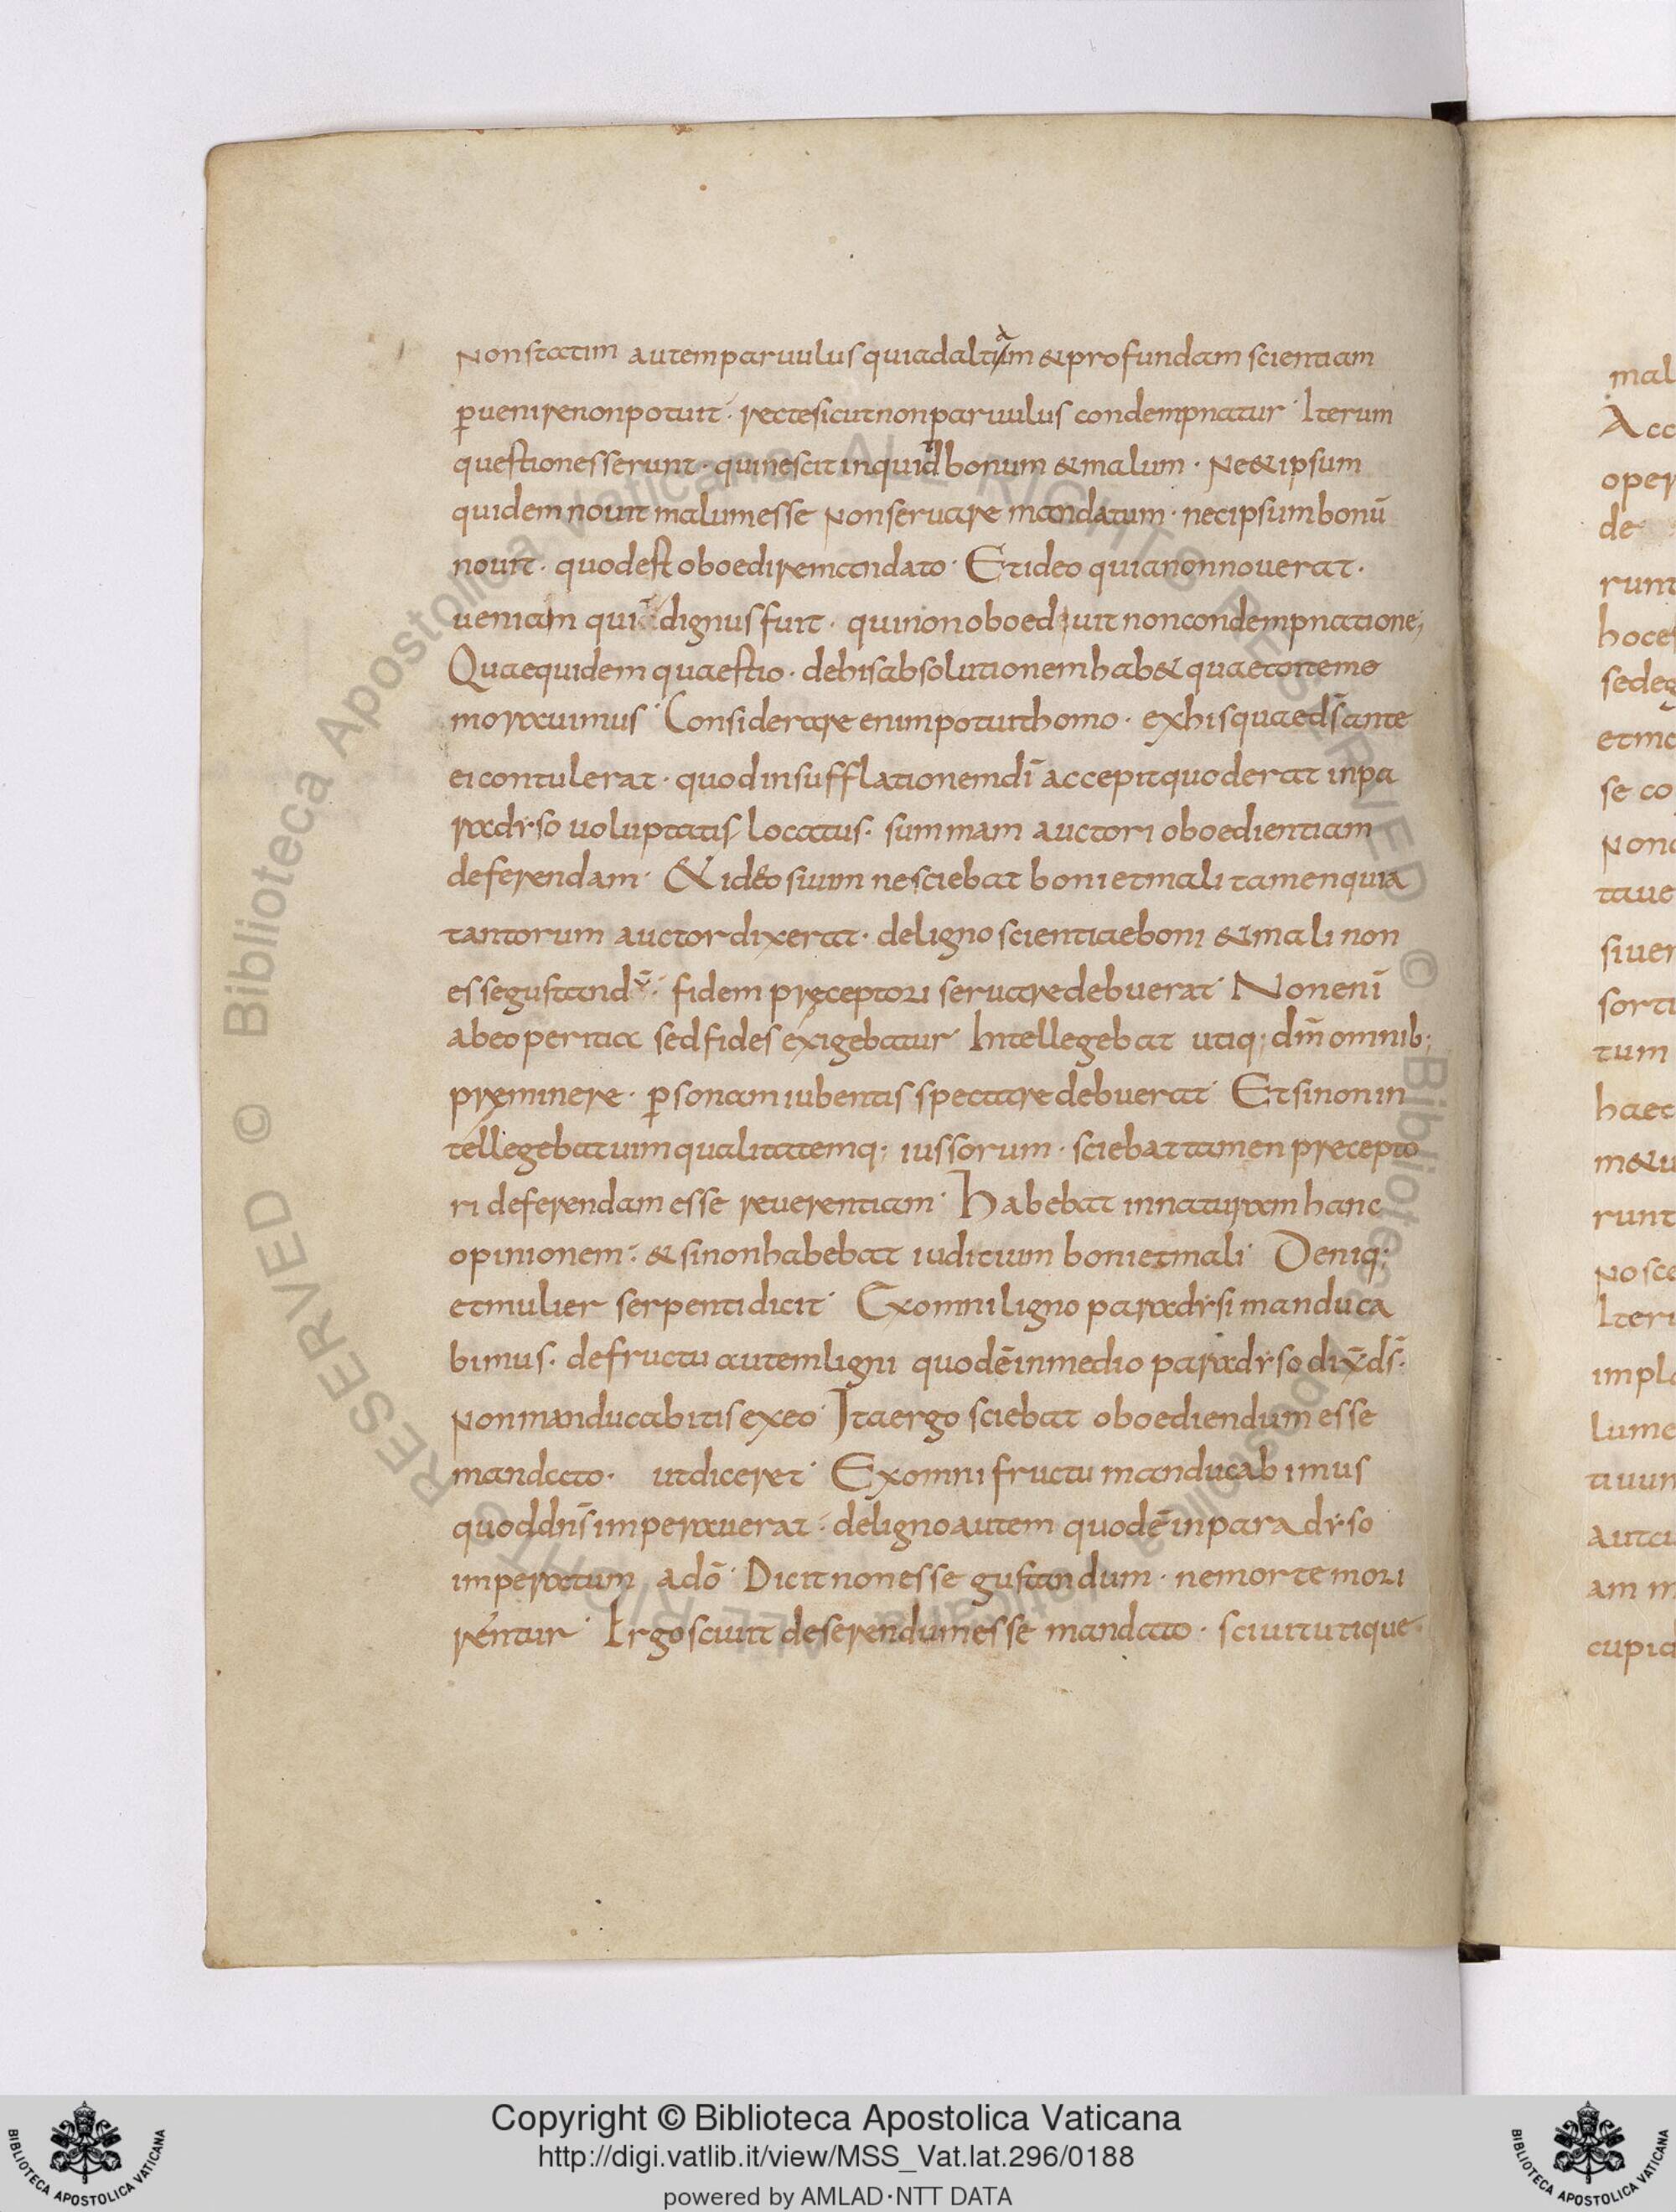 non statim autem paruulus qui ad altam & profundam scientiam
ꝑuenire non potuit · recte sicut non paruulus condempnatur · Iterum
questiones serunt · qui nescit inquid bonum & malum · ne & ipsum
quidem nouit malum esse non seruare mandatum · nec ipsum bonū
nouit · quod est oboedire mandato · Et ideo quia non nouerat ·
ueniam qui dignus fuit · qui non oboediuit non condempnatione;
Quae quidem quaestio · de his absolutionem hab& quae
morauimus · Considerare enim potuit homo · ex his quae dS̄ ante
ei contulerat · quod insufflationem dī accepit quod erat in pa
radyso uoluptatis locatus · summam auctori oboedientiam
deferendam · & ideo si uim nesciebat boni et mali tamen quia
tantorum auctor dixerat · de ligno scientiae boni & mali non
esse gustandū · fidem pręceptori seruare debuerat · Non enī
ab eo peritia sed fides exigebatur · Intellegebat utiq; dm̄ omnib;
pręminere · ꝑsonam iubentis spectare debuerat · Et si non in
tellegebat uim qualitatemq; iussorum · sciebat tamen precepto
ri deferendam esse reuerentiam · Habebat in naturam hanc
opinionem · & si non habebat iudicium boni et mali · Deniq;
et mulier serpenti dicit · Ex omni ligno paradysi manduca
bimus · de fructu autem ligni quod ē in medio paradyso dix̄ dS̄ ·
non manducabitis ex eo · Ita ergo sciebat oboediendum esse
mandato · ut diceret · Ex omni fructu manducabimus
quod dn̄s imperauerat · de ligno autem quod ē in paradyso
imperatum a dō · Dicit non esse gustandum · ne morte mori
rentur · Ergo sciuit deserendum esse mandato · sciuit utique ·
mal
Acc
oper
de
runt
hoces
sedeg
etmo
se co
non
taue
siuer
sorti
tum
haec
m&u
runt
nosce
Iteri
impl
lume
tiuum
autcu
am m
cupid
© Biblioteca Apostolica Vaticana ALL RIGHTS RESERVED © Biblioteca Apostolica Vaticana ALL RIGHTS RESERVED
BIBLIOTECA APOSTOLICA VATICANA
Copyright © Biblioteca Apostolica Vaticana
http://digi.vatlib.it/view/MSS_Vat.lat.296/0188
powered by AMLAD·NTT DATA
BIBLIOTECA APOSTOLICA VATICANA